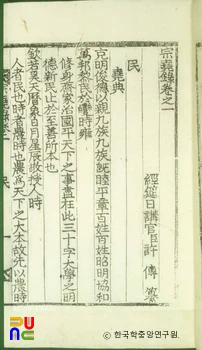 宗堯錄卷之一
經筵日講官臣許傳纂
民
堯典
克明俊德以親九族九族旣睦平章百姓百姓昭明協和
萬邦黎民於變時雍
修身齊家治國平天下之事盡在此三十字大學之明
德新民止於至善所本也
欽若昊天曆象日月星辰敬授人時
人者民也時者農時也農爲天下之大本故先以農時
民
ⓒ 한국학중앙연구원.